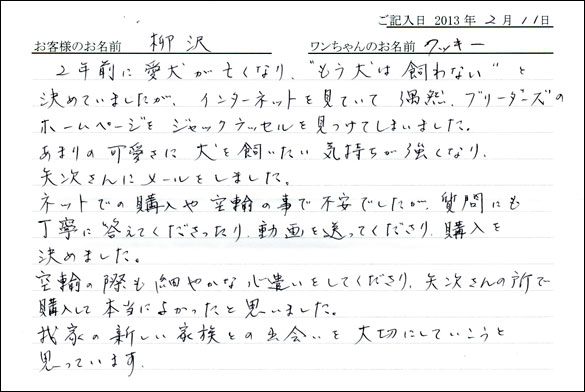 ご記入日 2013 年 2 月 11 日
お客様のお名前 柳沢 ワンちゃんのお名前 クッキー
2年前に愛犬が亡くなり、"もう犬は飼わない"と
決めていましたが、インターネットを見ていて偶然、ブリーダーズの
ホームページをジャックラッセルを見つけてしまいました。
あまりの可愛さに犬を飼いたい気持ちが強くなり、
矢次さんにメールをしました。
ネットでの購入や空輸の事で不安でしたが、質問にも
丁寧に答えてくださったり、動画を送ってくださり、購入を
決めました。
空輸の際も細やかな心遣いをしてくださり、矢次さんの所で
購入して本当によかったと思いました。
我家の新しい家族との出会いを大切にしていこうと
思っています。